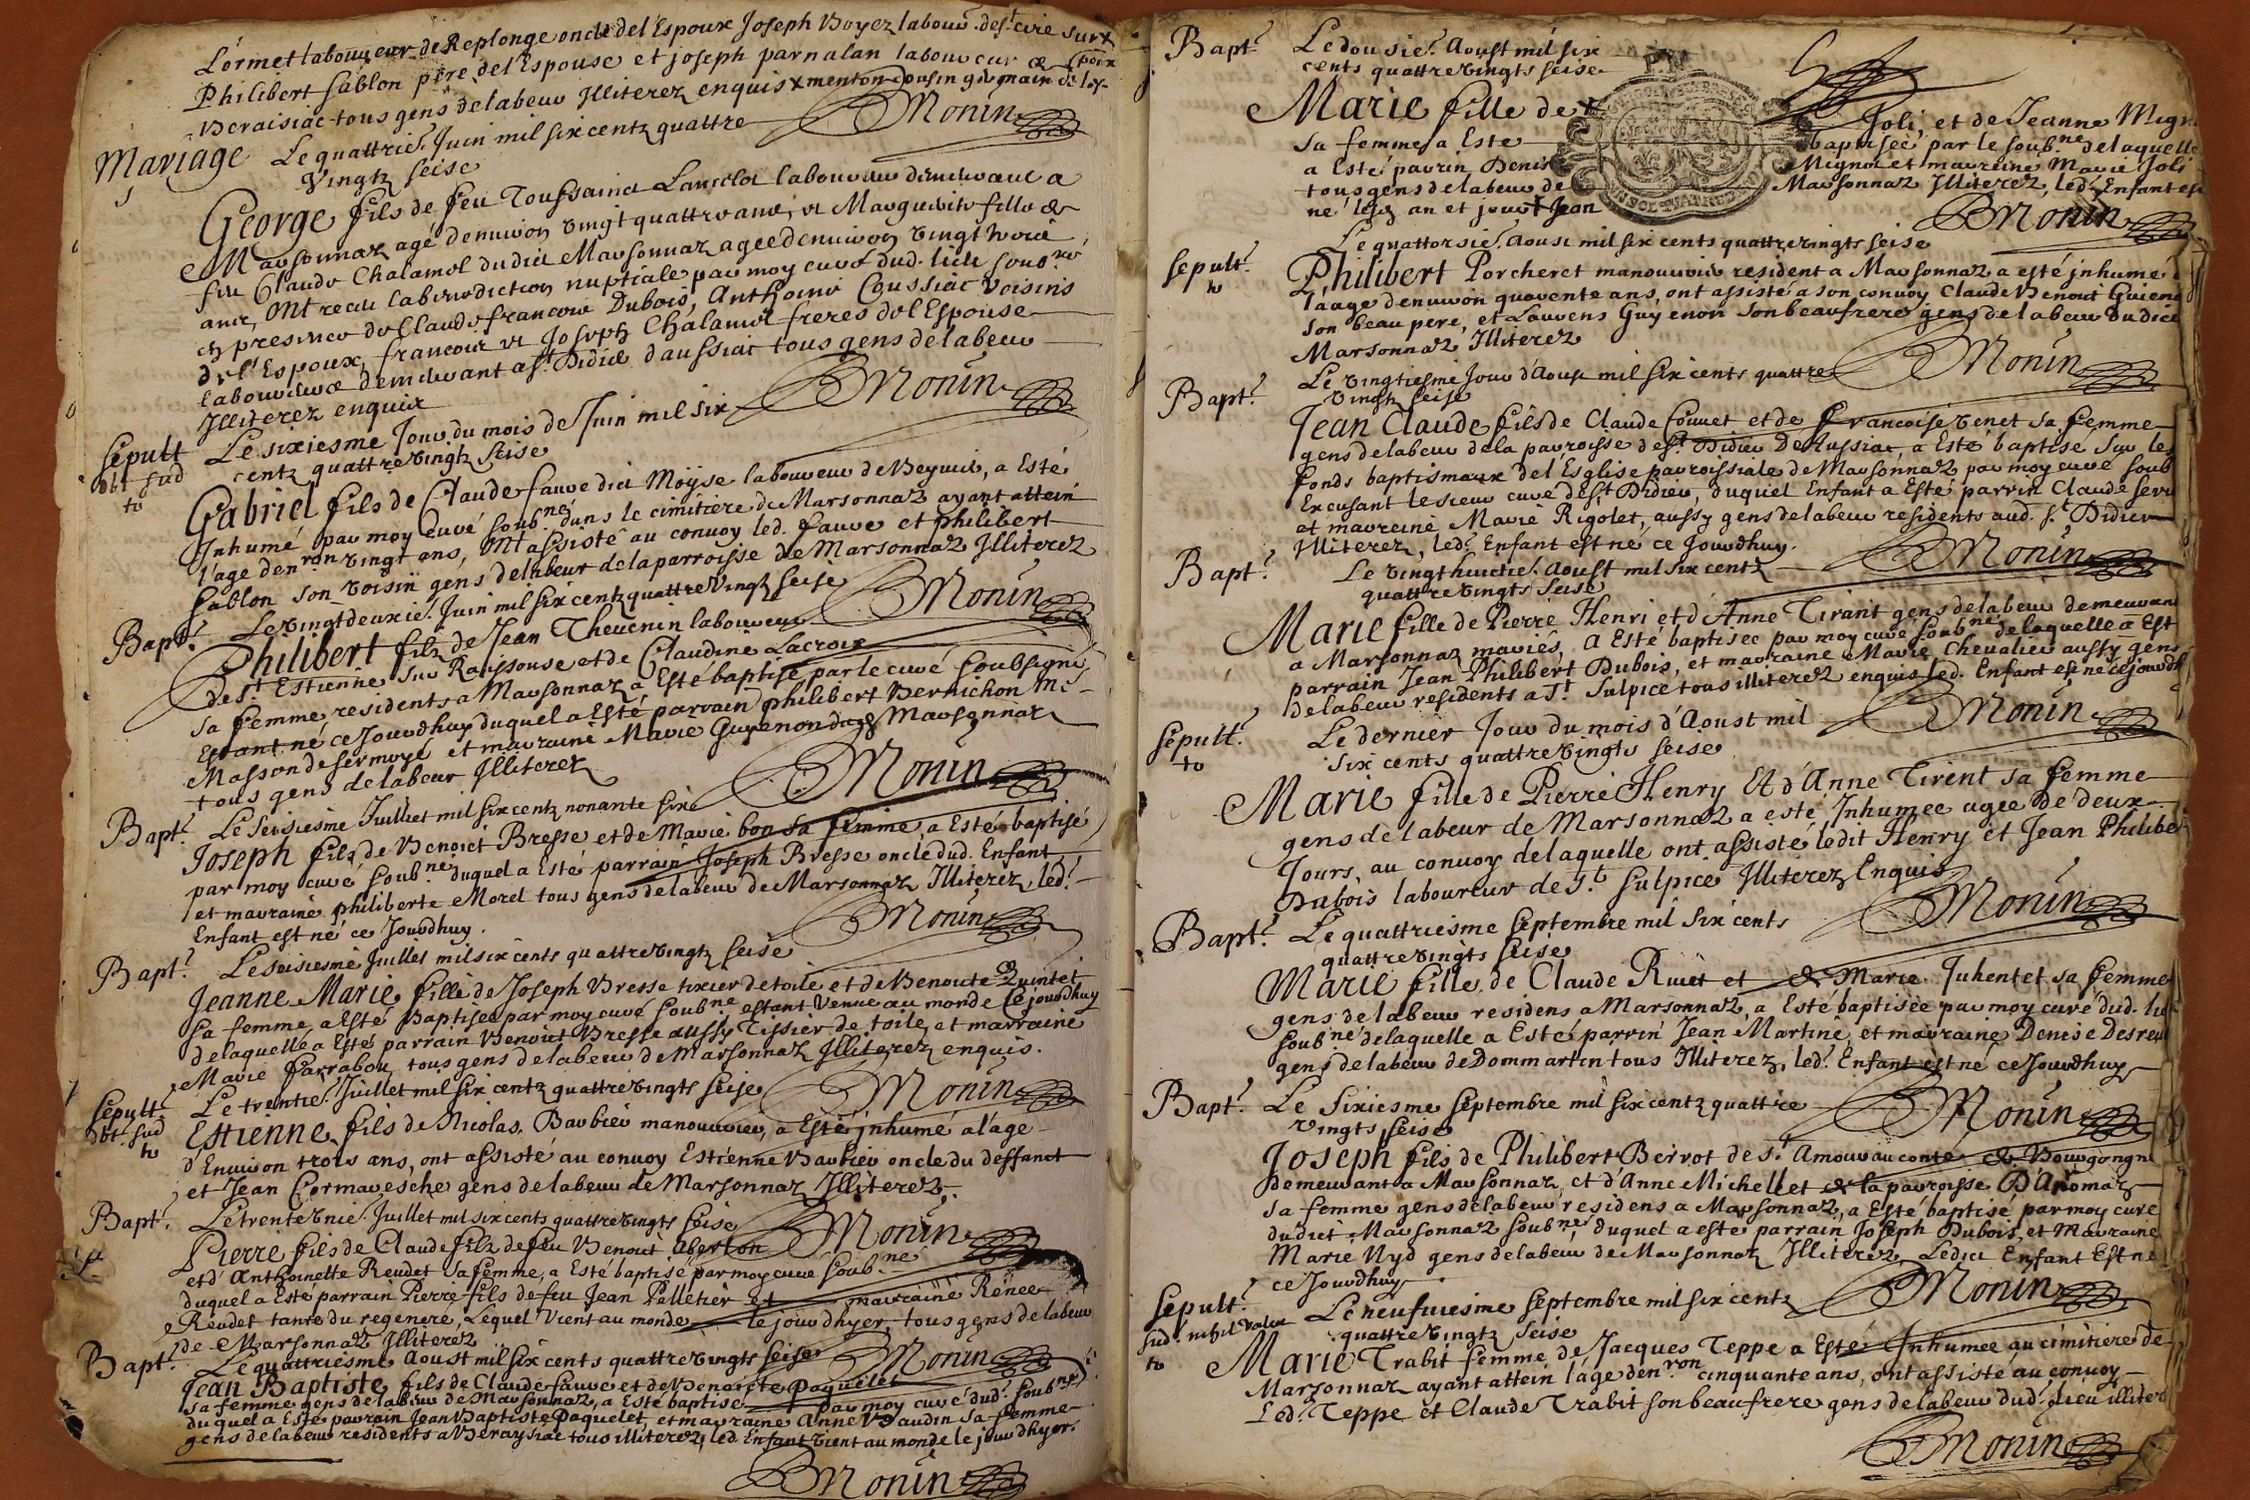 Lormet laboureur de Replonge oncle de l'Espoux Joseph Boyez labour. de s.t cire sur
Philibert sablon pere de l'Espouse et joseph parnalan laboureur de
Beraisiac tous gens de labeur Illiterez enquis x menton cousin germain de
Monin
Mariage
Le quattrie. Juin mil six centz quattre
Vingtz seise
George fils de feu Toussainct Lancelot laboureur demeurant a
Marsonnaz agé d'environ vingt quattre ans, et Marguerite fille de
feu Claude Chalamel dudict Marsonnaz agee denviron vingt trois
ans, ont receu la benediction nuptiale par moy curé dud. lieu soub.né
en presence de Claude francois Dubois, Anthoine Coussiac voisins
de l'Espoux, francois et Joseph Chalamel freres de l'Espouse
laboureurs demeurant a s.t Didier d'aussiat tous gens de labeur
Illiterez enquis
Monin
sepult
dbt sud
to
Le sixiesme Jour du mois de Juin mil six
centz quattre vingtz seise
Gabriel fils de Claude fauve dict Moÿse laboureur de Beynie, a Esté
Inhumé par moy curé soub.né dans le cimitiere de Marsonnaz ayant attein
l'age den.ron vingt ans, ont assisté au convoy led. fauve et philibert
sablon son voisin gens de labeur de la parroisse de Marsonnaz Illiterez
Monin
Bapt.
Le vingt deuxie. Juin mil six centz quattre Vingtz seise
Philibert filz de Jean Thevenin laboureur
de s.t Estienne sur Raissouse et de Claudine Lacroix
sa femme, residents a Marsonnaz a Esté baptisé par le curé soubsigné
Estant né ce Jourdhuy duquel a Esté parrain philibert Bernichon m.e
Masson de sermoyé et marraine Marie Guyenon de Marsonnaz
tous gens de labeur Illiterez
Monin
Bapt.
Le seisiesme Juillet mil six centz nonante six
Joseph fils de Benoict Bresse et de Marie bon sa femme, a Esté baptisé
par moy curé soub.né duquel a Esté parrain Joseph Bresse oncle dud. Enfant
et marraine philiberte Morel tous gens de labeur de Marsonnaz Illiterez, led.
Enfant est né ce Jourdhuy.
Monin
Bapt.
Le seisiesme Juillet mil six cents quattre vingtz seise
Jeanne Marie fille de Joseph Bresse tixier de toile et de Benoite Quintet
sa femme, a Esté Baptisee par moy curé soub.né estant venue au monde ce jourdhuy
de laquelle a Esté parrain Benoict Bresse aussy Tissier de toile, et marraine
Marie Parrabou, tous gens de labeur de Marsonnaz Illiterez enquis.
Monin
sepult.
dbt. sud
to
Le trentie. Juillet mil six centz quattre vingts seise
Estienne fils de Nicolas Barbier manouvrier, a Esté inhumé a l'age
d'Environ trois ans, ont assisté au convoy Estienne Barbier oncle du deffunct
et Jean Cormaresche gens de labeur de Marsonnaz Illiterez.
Monin
Bapt.
Le trente vnie. Juillet mil six cents quattre vingts seise
Pierre fils de Claude filz de feu Benoict Aberton
et d'Anthoinette Reudet sa femme, a Esté baptisé par moy curé soub.né
duquel a Esté parrain Pierre fils de feu Jean Pelletier et marraine Renee
Reudet tante du regeneré, Lequel Vient au monde le jour dhyer, tous gens de labeur
de Marsonnaz Illiterez
Monin
Bapt.
Le quattriesme Aoust mil six cents quattre vingts seise
Jean Baptiste fils de Claude fauve et de Benoicte Paquelet
sa femme gens de labeur de Marsonnaz, a Esté baptisé par moy curé dud. soub.né
duquel a Esté parrain Jean Baptiste Paquelet, et marraine Anne Baudin sa femme
gens de labeur residents a Beraysiac tous illiterez, led. Enfant vient au monde le jour dhyer.
Monin
Bapt.
Le dousie. Aoust mil six
cents quattre vingts seise
Marie fille de Joli, et de Jeanne Mign
sa femme, a Este baptisee par le soub.né de laquelle
a Esté parrin Denis Mignot et marraine Marie Joli
tous gens de labeur de Marsonnaz Illiterez, led. Enfant est
né lesd. an et jour Jean
Monin
sepult.
to
Le quattorsie. Aoust mil six cents quattre vingts seise
Philibert Porcheret manouvrier resident a Marsonnaz a esté inhumé
l'aage denviron quarente ans, ont assisté a son convoy Claude Benoict Guienon
son beau pere, et Laurens Guyenon son beaufrere gens de labeur dudict
Marsonnaz Illiterez
Monin
Bapt.
Le vingtiesme Jour d'Aoust mil six cents quattre
vingtz seise
Jean Claude fils de Claude Couvet et de francoise Venet sa femme
gens de labeur de la parroisse de s.t Didier De Aussiac, a Esté baptisé sur les
fonds baptismaux de l'Esglise parroissiale de Marsonnaz par moy curé soub
Excusant le sieur curé de s.t Didier, duquel Enfant a Esté parrin Claude
et marreine Marie Rigolet, aussy gens de labeur residents aud. s.t Didier
Illiterez, led. Enfant est né ce Jourdhuy.
Monin
Bapt.
Le vingt huictie. Aoust mil six centz
quattre vingts seise
Marie fille de Pierre Henri et d'Anne Tirant gens de labeur demeurant
a Marsonnaz mariés, a Esté baptisee par moy curé soub.né de laquelle a Est
parrain Jean Philibert Dubois, et marraine Marie Chevalier aussy gens
de labeur residents a S.t Sulpice tous illiterez enquis led. Enfant est né ce jourdh
Monin
sepult.
to
Le dernier Jour du mois d'Aoust mil
six cents quattre vingts seise
Marie fille de Pierre Henry Et d'Anne Tirent sa femme
gens de labeur de Marsonnaz a esté Inhumee agee de deux
Jours, au convoy de laquelle ont assisté ledit Henry et Jean Philiber
Dubois laboureur de S.t Sulpice Illiterez Enquis
Monin
Bapt.
Le quattriesme septembre mil six cents
quattre vingts seise
Marie fille de Claude Ruiet et de Marie Juhentet sa femme
gens de labeur residens a Marsonnaz, a Esté baptisée par moy curé dud. lie
soub.né de laquelle a Esté parrin Jean Martine et marraine Denise
gens de labeur de Dommartin tous Illiterez, led. Enfant est né ce Jourdhuy
Monin
Bapt.
Le sixiesme septembre mil six centz quattre
vingts seise
Joseph fils de Philibert Berrot de s.t Amour au conté de Bourgongn
Demeurant a Marsonnaz, et d'Anne Michellet de la parroisse D'Aromaz
sa femme gens de labeur residens a Marsonnaz, a Esté baptisé par moy curé
dudict Marsonnaz soub.né, duquel a esté parrain Joseph Dubois, et Marraine
Marie Nyd gens de labeur de Marsonnaz Illiterez, Ledict Enfant Est né
ce Jourdhuy
Monin
sepult.
sud. nihil valor
to
Le neufviesme septembre mil six centz
quattre vingtz seise
Marie Trabit femme de Jacques Teppe a Esté Inhumee au cimitiere de
Marsonnaz ayant attein l'age den.ron cinquante ans, ont assisté au convoy
Led. Teppe et Claude Trabit son beaufrere gens de labeur dud. Lieu illiter
Monin